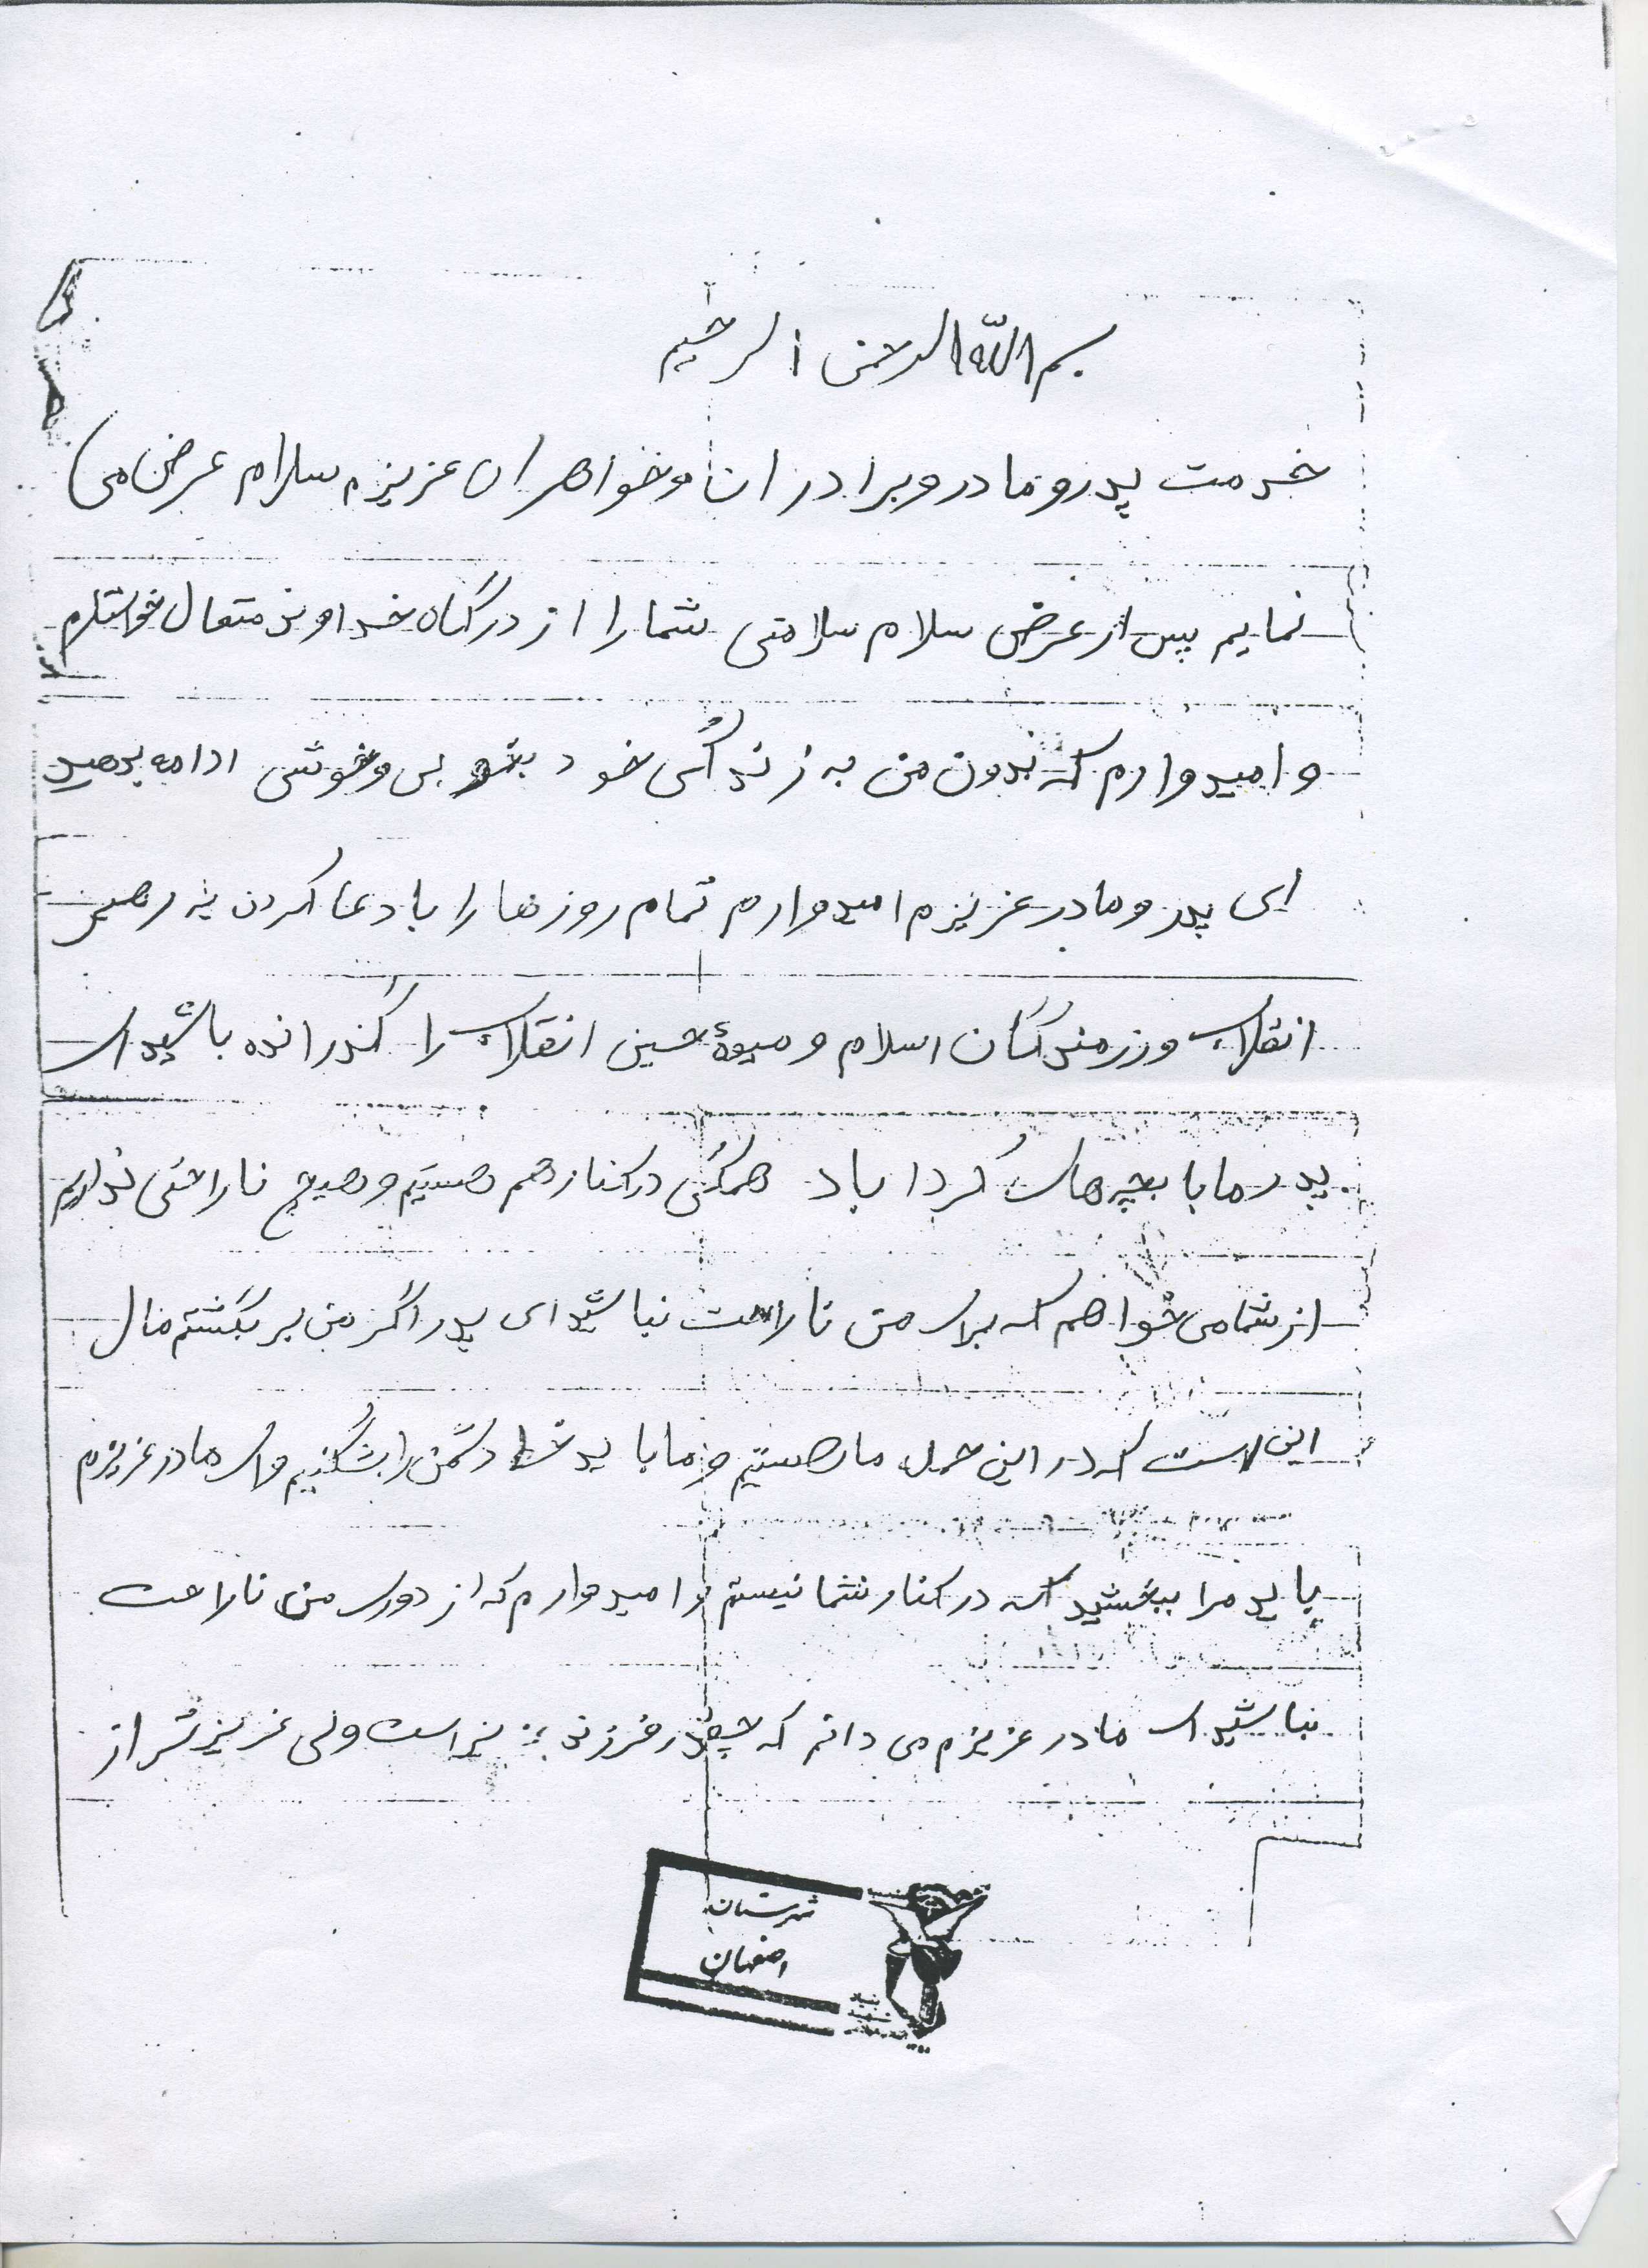 بسم الله الرحمن الرحیم
خدمت پدر و مادر و برادران و خواهران عزیزم سلام عرض می
نمایم پس از عرض سلام سلامتی شما را از درگاه خداوند متعال خواستارم
و امیدوارم که بدون من به زندگی خود بخوبی و خوشی ادامه بدهید
ای پدر و مادر عزیزم امیدوارم تمام روزها را با دعا کردن به رهبر
انقلاب و رزمندگان اسلام و میوهٔ حسین انقلاب را گذرانده باشید ای
پدر ما با بچه های گردا باد همگی در کنار هم هستیم و هیچ ناراحتی نداریم
از شما می خواهم که برای من ناراحت نباشید ای پدر اگر من بر نگشتم مال
این است که در این حمله ما هستیم و ما باید خط دشمن را بشکنیم و ای مادر عزیزم
باید مرا ببخشید که در کنار شما نیستم و امیدوارم که از دوری من ناراحت
نباشید ای مادر عزیزم می دانم که چقدر فرزند عزیز است ولی عزیزتر از
شهرستان
اصفهان
بنیاد
شهید